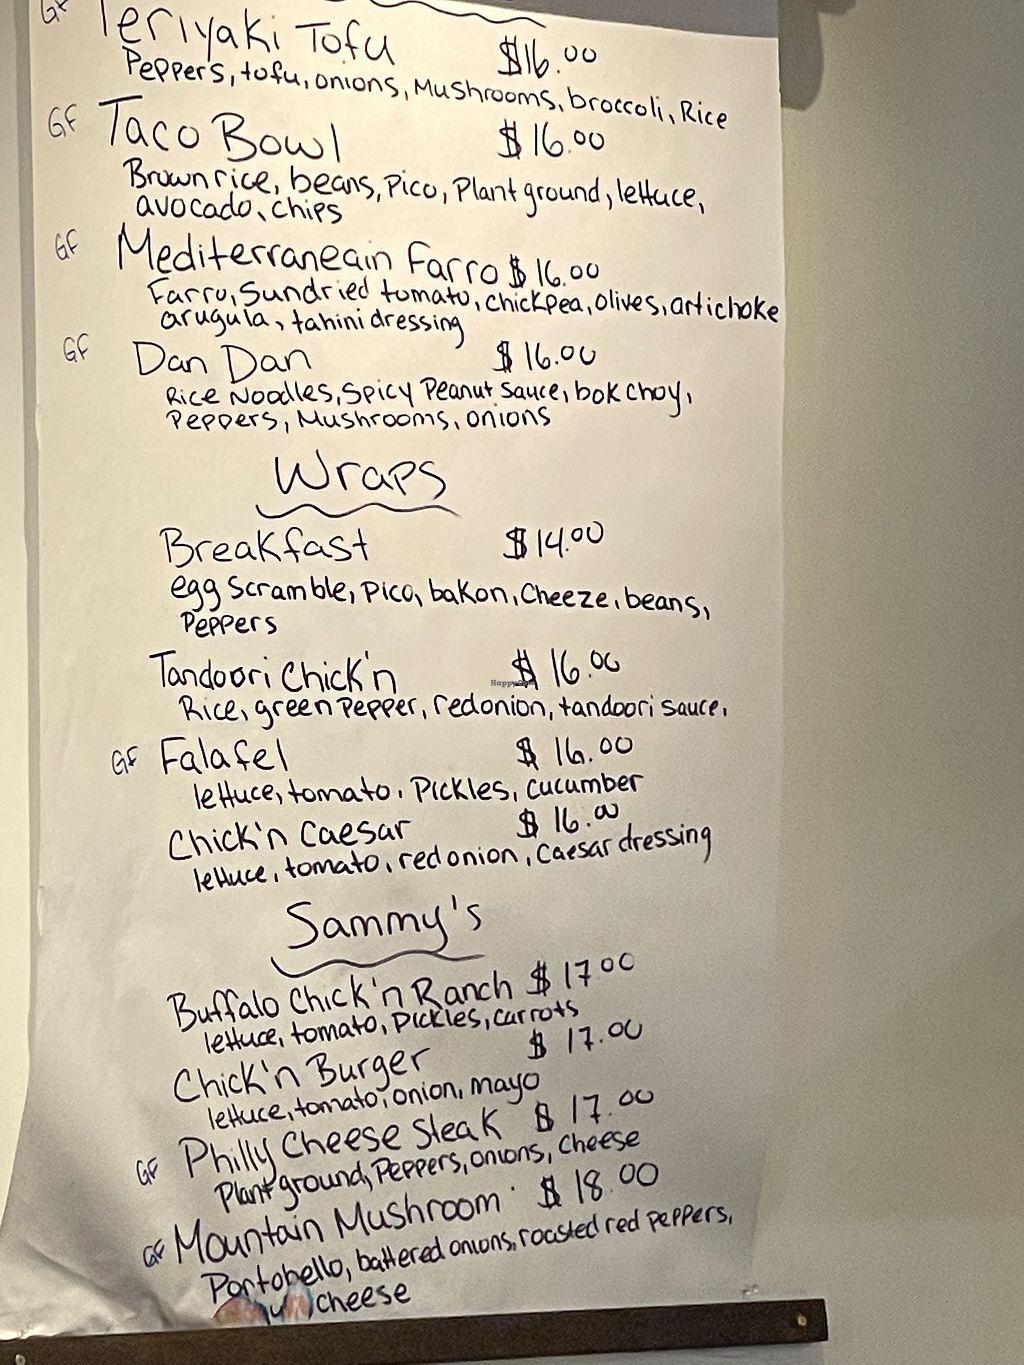 GF Teriyaki Tofu $16.00
Peppers, tofu, onions, Mushrooms, broccoli, Rice
GF Taco Bowl $16.00
Brown rice, beans, Pico, Plant ground, lettuce,
avocado, chips
GF Mediterraneain Farro $16.00
Farro, Sundried tomato, chickpea, olives, artichoke
arugula, tahini dressing
GF Dan Dan $16.00
Rice Noodles, Spicy Peanut Sauce, bok choy,
Peppers, Mushrooms, onions
Wraps
Breakfast $14.00
egg Scramble, Pico, bakon, Cheeze, beans,
Peppers
Tandoori Chick'n $16.00
Rice, green Pepper, red onion, tandoori sauce,
GF Falafel $16.00
lettuce, tomato, Pickles, cucumber
Chick'n Caesar $16.00
lettuce, tomato, red onion, Caesar dressing
Sammy's
Buffalo Chick'n Ranch $17.00
lettuce, tomato, Pickles, carrots
Chick'n Burger $17.00
lettuce, tomato, onion, mayo
GF Philly Cheese Steak $17.00
Plant ground, Peppers, onions, Cheese
GF Mountain Mushroom $18.00
Portobello, battered onions, roasted red peppers,
cheese